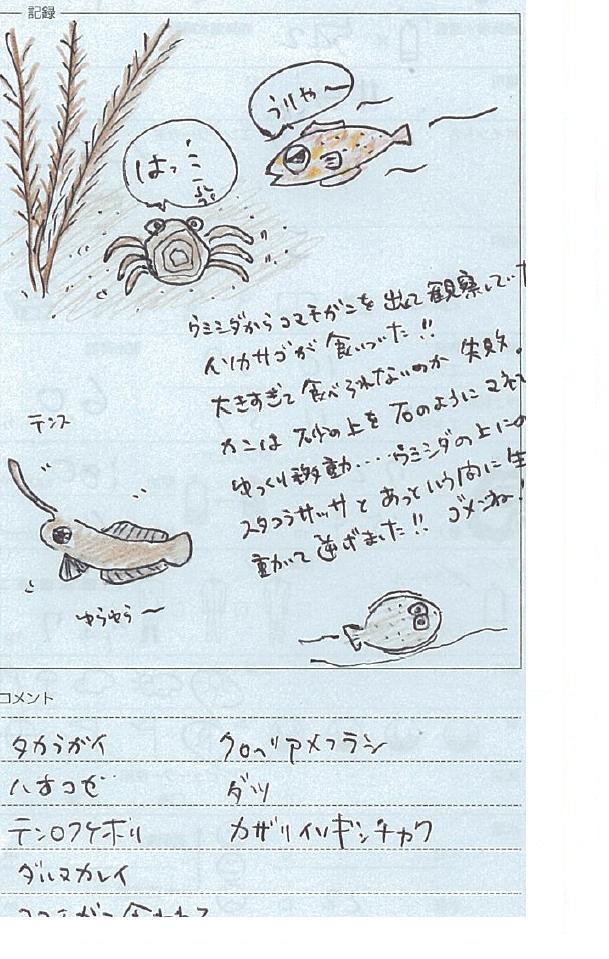 記録
うりゃ〜
はっ
ウミシダからコマチガニを出して観察してい
イソカサゴが食いついた!!
大きすぎて食べられないのか 失敗。
カニは 砂の上を 石のように マネし
ゆっくり移動‥‥ウミシダの上に
スタコラサッサと あっという間に
動かて 逃げました!! ゴメンね!
テンス
ゆらゆら〜
コメント
タカラガイ クロヘリアメフラシ
ハオコゼ ダツ
テンロクケボリ カザリイソギンチャク
ダルマカレイ